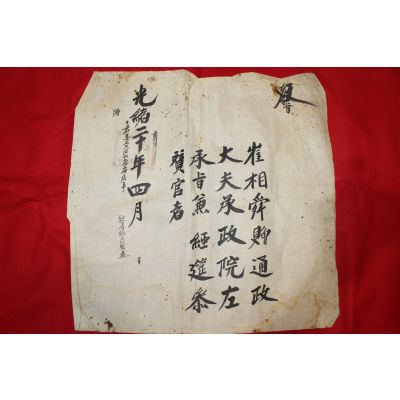 敎旨
崔相舜贈通政
大夫承政院左
承旨兼經筵叅
贊官者
光緖二十年四月